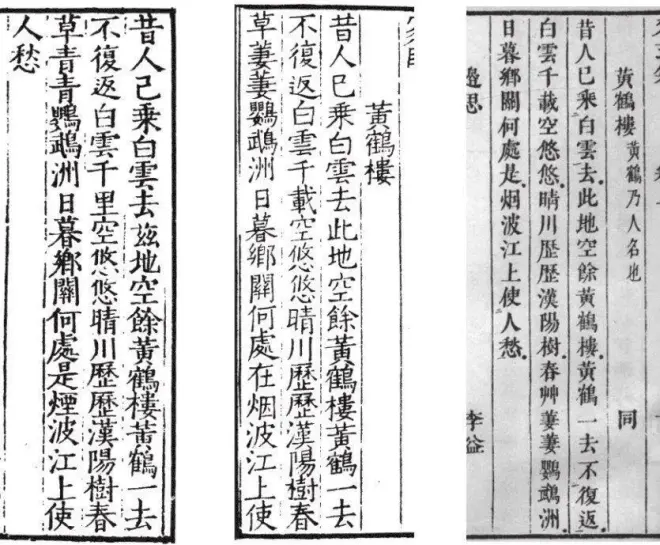 昔人已乘白雲去茲地空餘黃鶴樓黃鶴一去
不復返白雲千里空悠悠晴川歷歷漢陽樹春
草青青鸚鵡洲日暮鄉關何處是煙波江上使
人愁
黃鶴樓
昔人已乘白雲去此地空餘黃鶴樓黃鶴一去
不復返白雲千載空悠悠晴川歷歷漢陽樹春
草萋萋鸚鵡洲日暮鄉關何處在烟波江上使
黃鶴樓 黃鶴乃人名也 同
昔人已乘白雲去。此地空餘黃鶴樓。黃鶴一去不復返。
白雲千載空悠悠。晴川歷歷漢陽樹。春艸萋萋鸚鵡洲。
日暮鄉關何處是。烟波江上使人愁。
邊思 李益